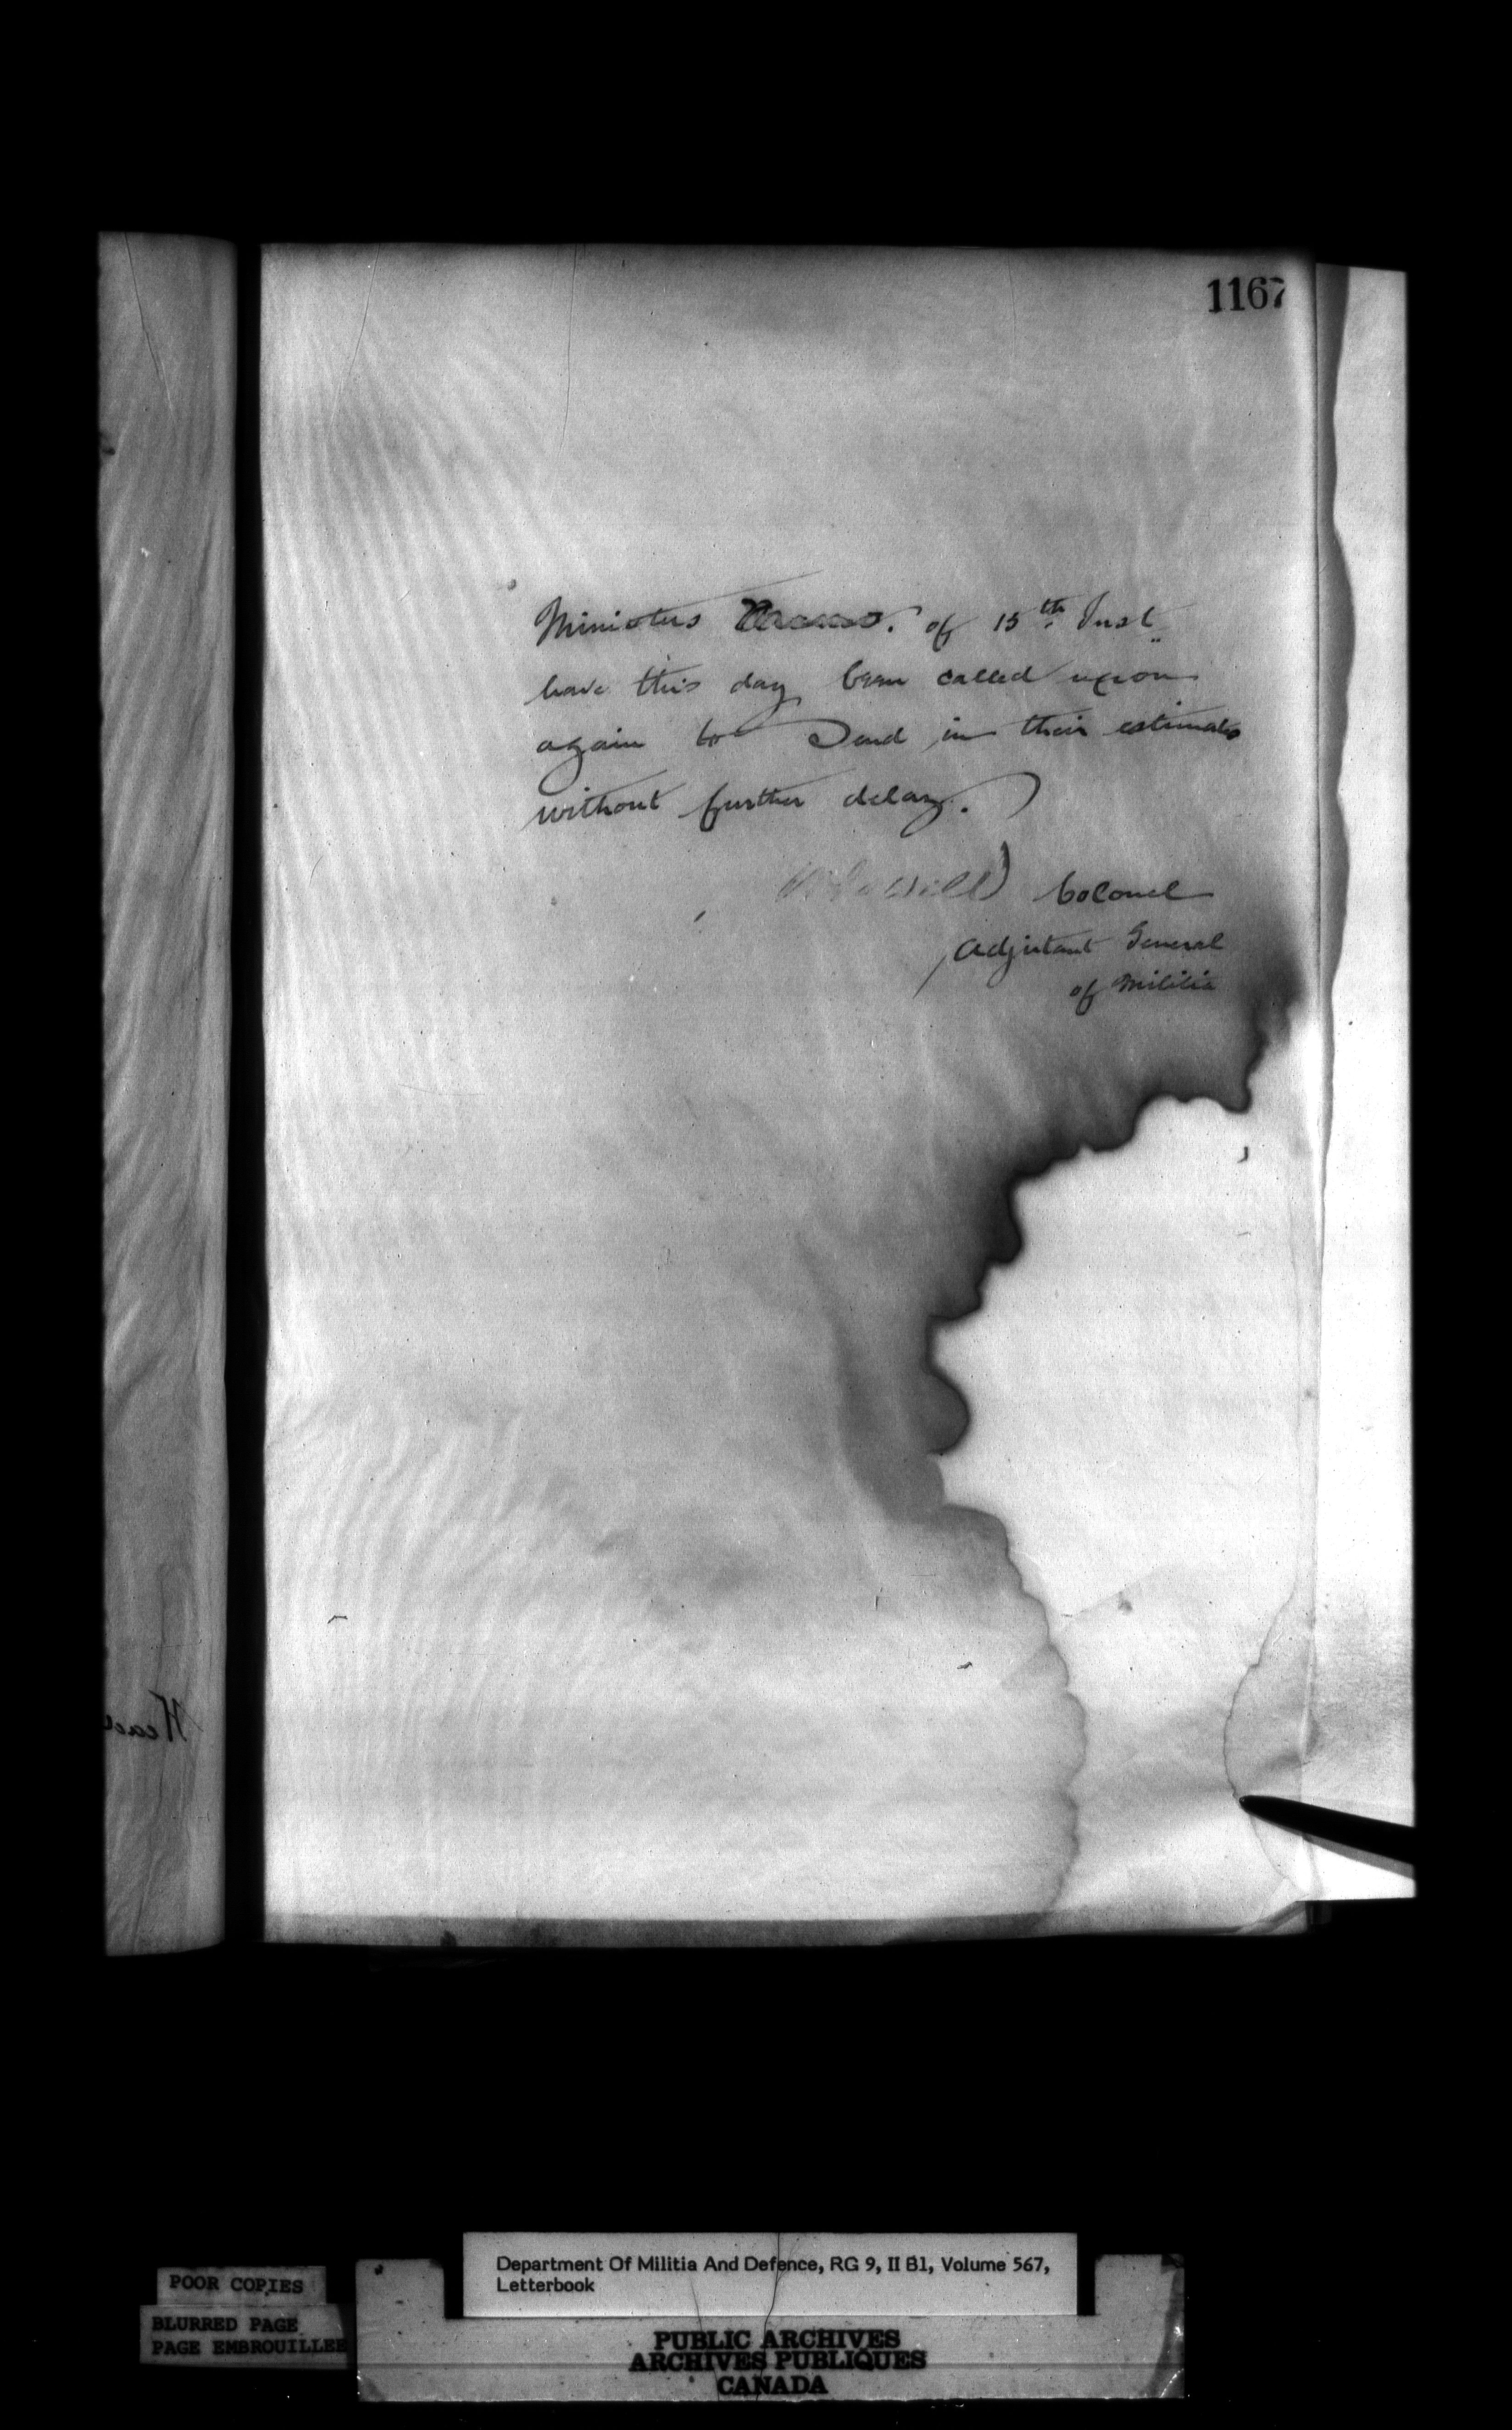 1167
Ministers Memo. of 15th Inst
have this day been called upon
again to Send in their estimates
without further delay.
Powell) Colonel
Adjutant General
of Militia
Department Of Militia And Defence, RG 9, II B1, Volume 567,
Letterbook
POOR COPIES
BLURRED PAGE
PAGE EMBROUILLEE
PUBLIC ARCHIVES
ARCHIVES PUBLIQUES
CANADA